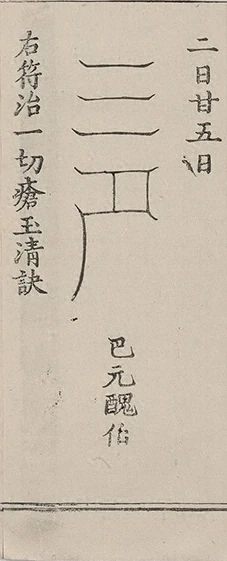 二日廿五日
巴元醜伯
右符治一切瘡玉清訣